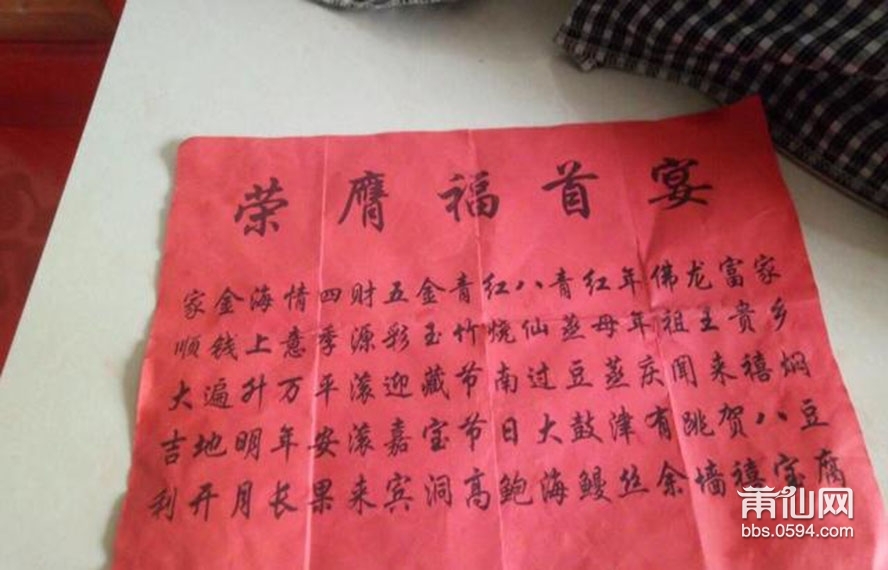 荣膺福首宴
家顺大吉利
金钱遍地开
海上升明月
情意万年长
四季平安果
财源滚滚来
五彩迎嘉宾
金玉藏宝洞
青竹节节高
红烧南日鲍
八仙过大海
青蒸豆鼓鳗
红母蒸津丝
年年庆有余
佛祖闻跳墙
龙王来贺禧
富贵禧八宝
家乡焖豆腐
莆仙网
bbs.0594.com